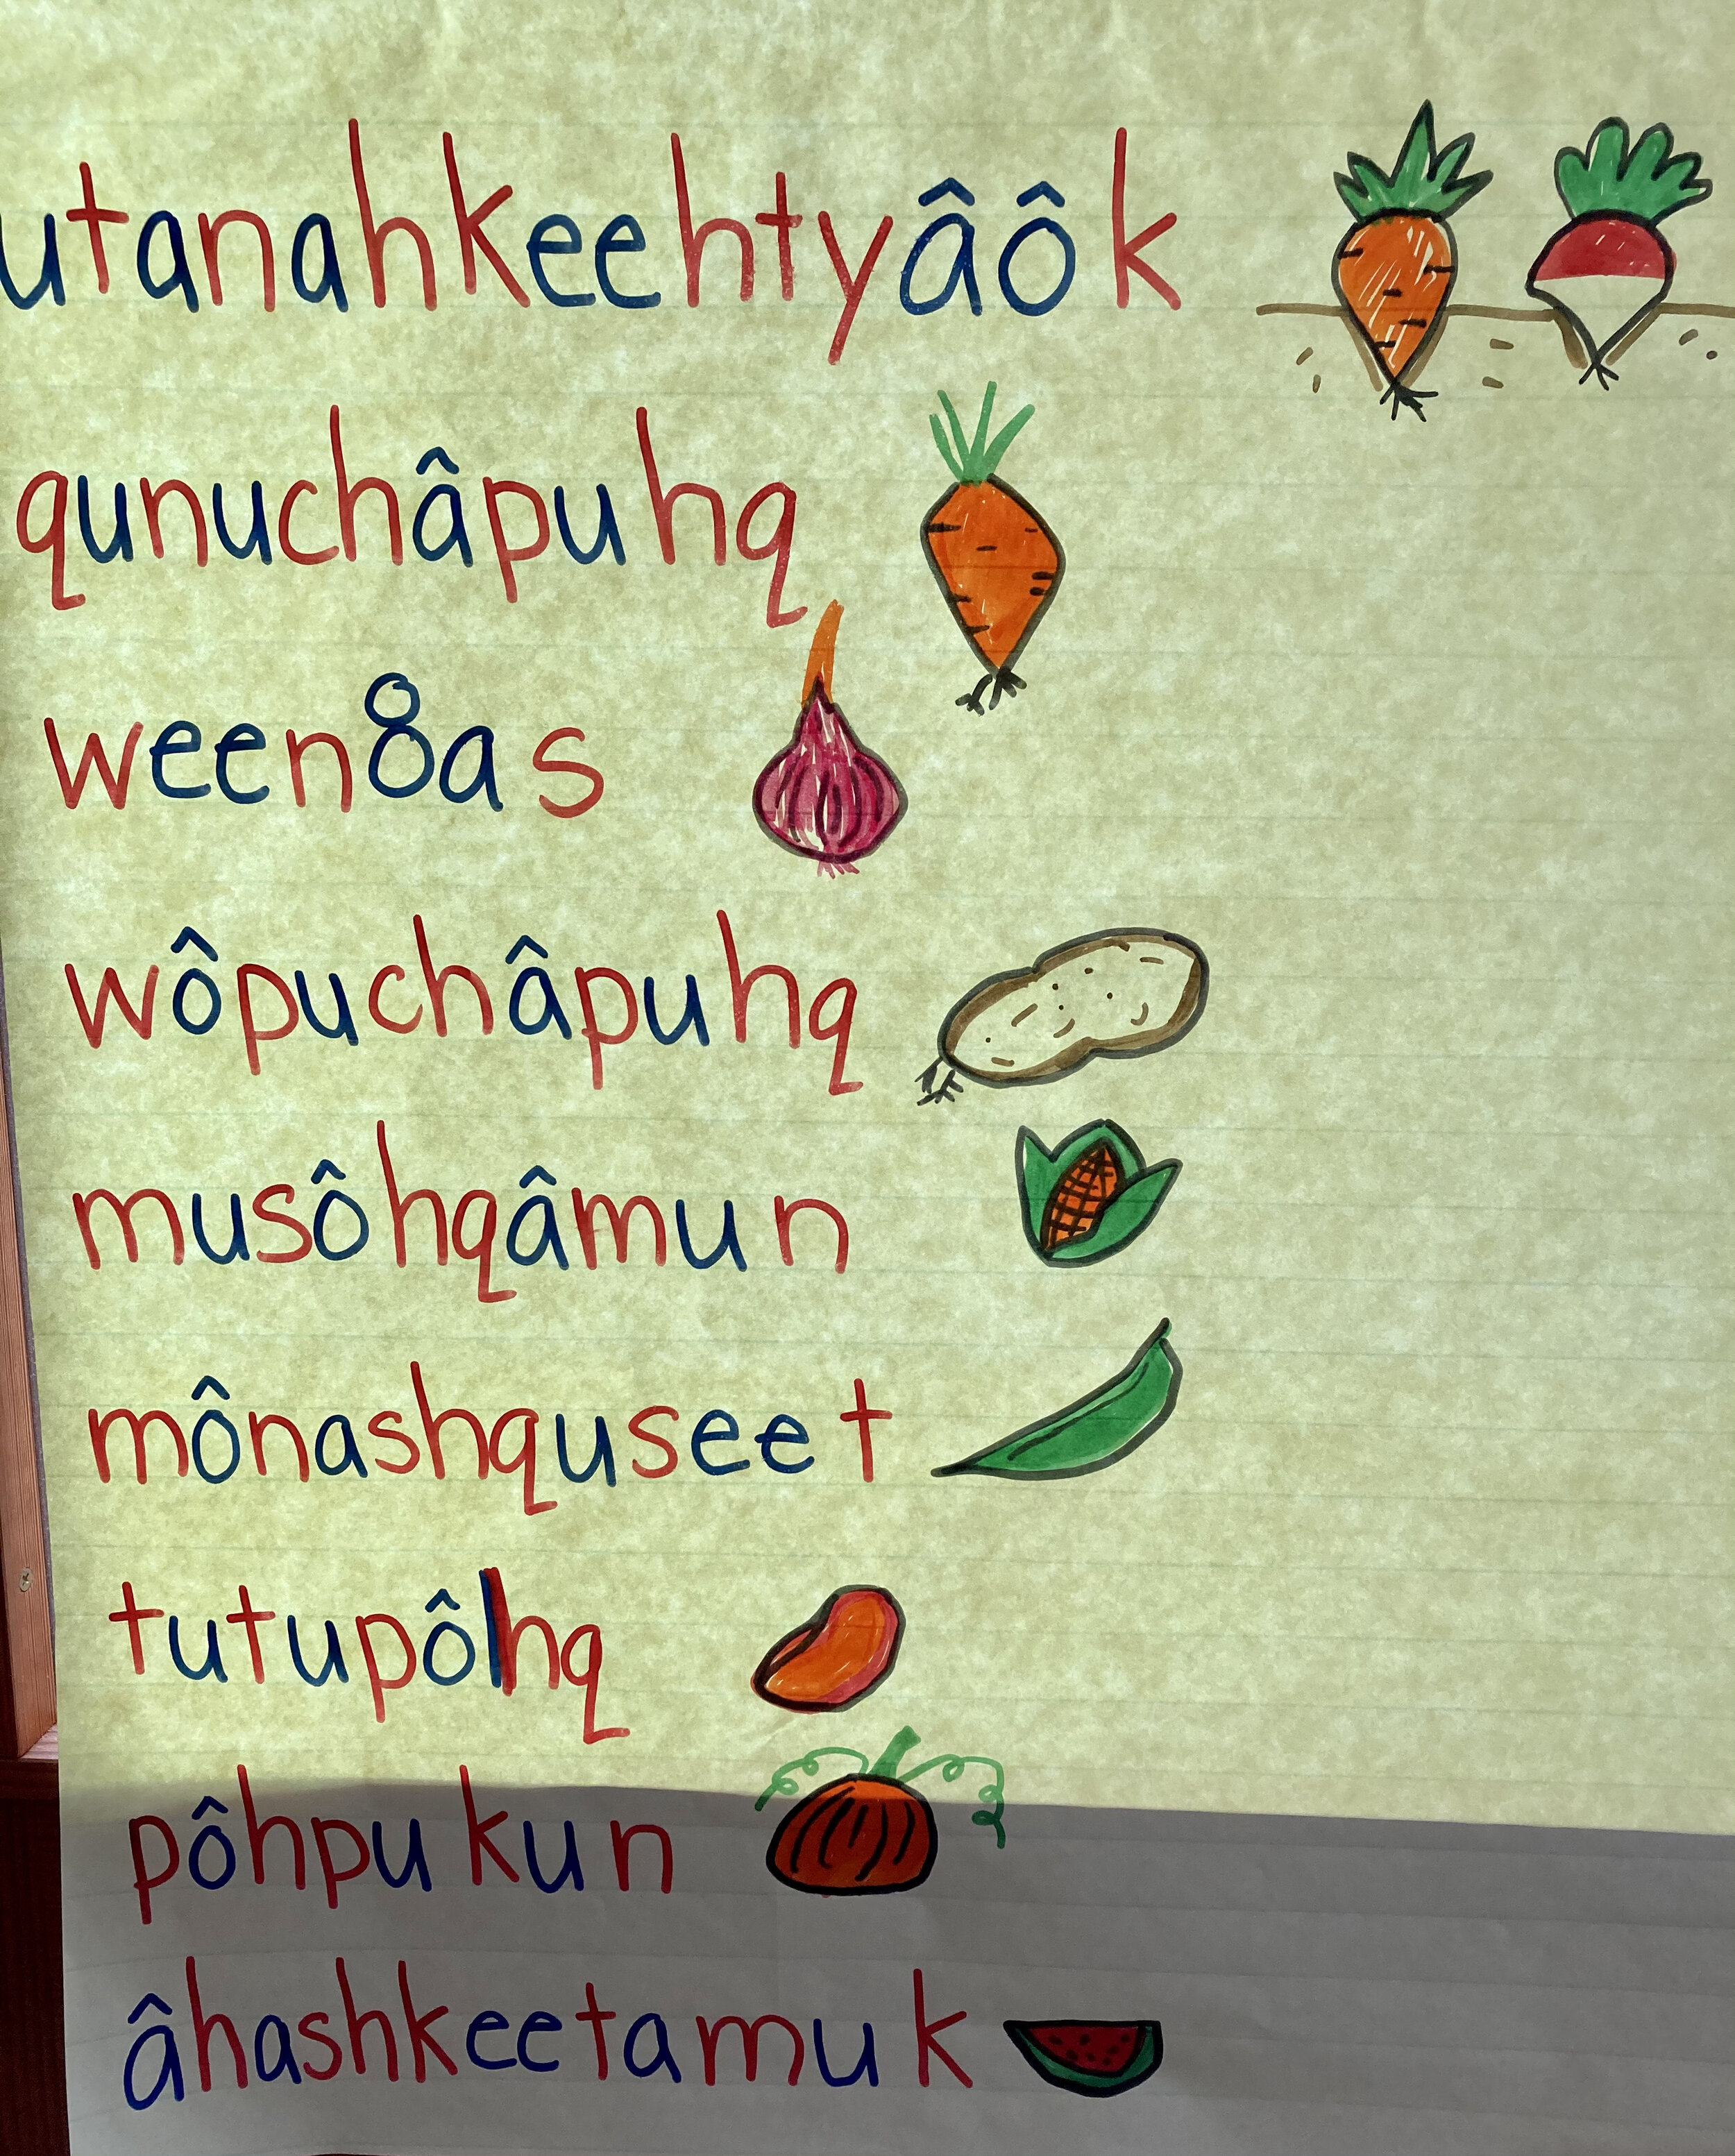 utanahkeehtyâôk
qunuchâpuhq
ween8as
wôpuchâpuhq
musôhqâmun
mônashquseet
tutupôhq
pôhpukun
âhashkeetamuk